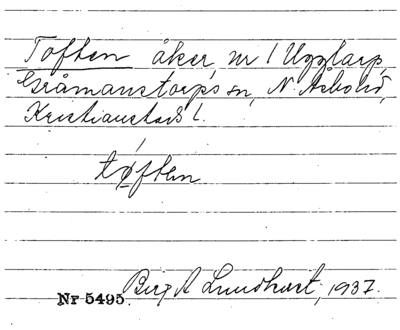 Toften åker, nr 1 Ugglarp,
Gråmanstorps sn, N. Åsbohd,
Kristianstads l.
tǿften
Nr 5495. Birg A Lundkvist, 1937.